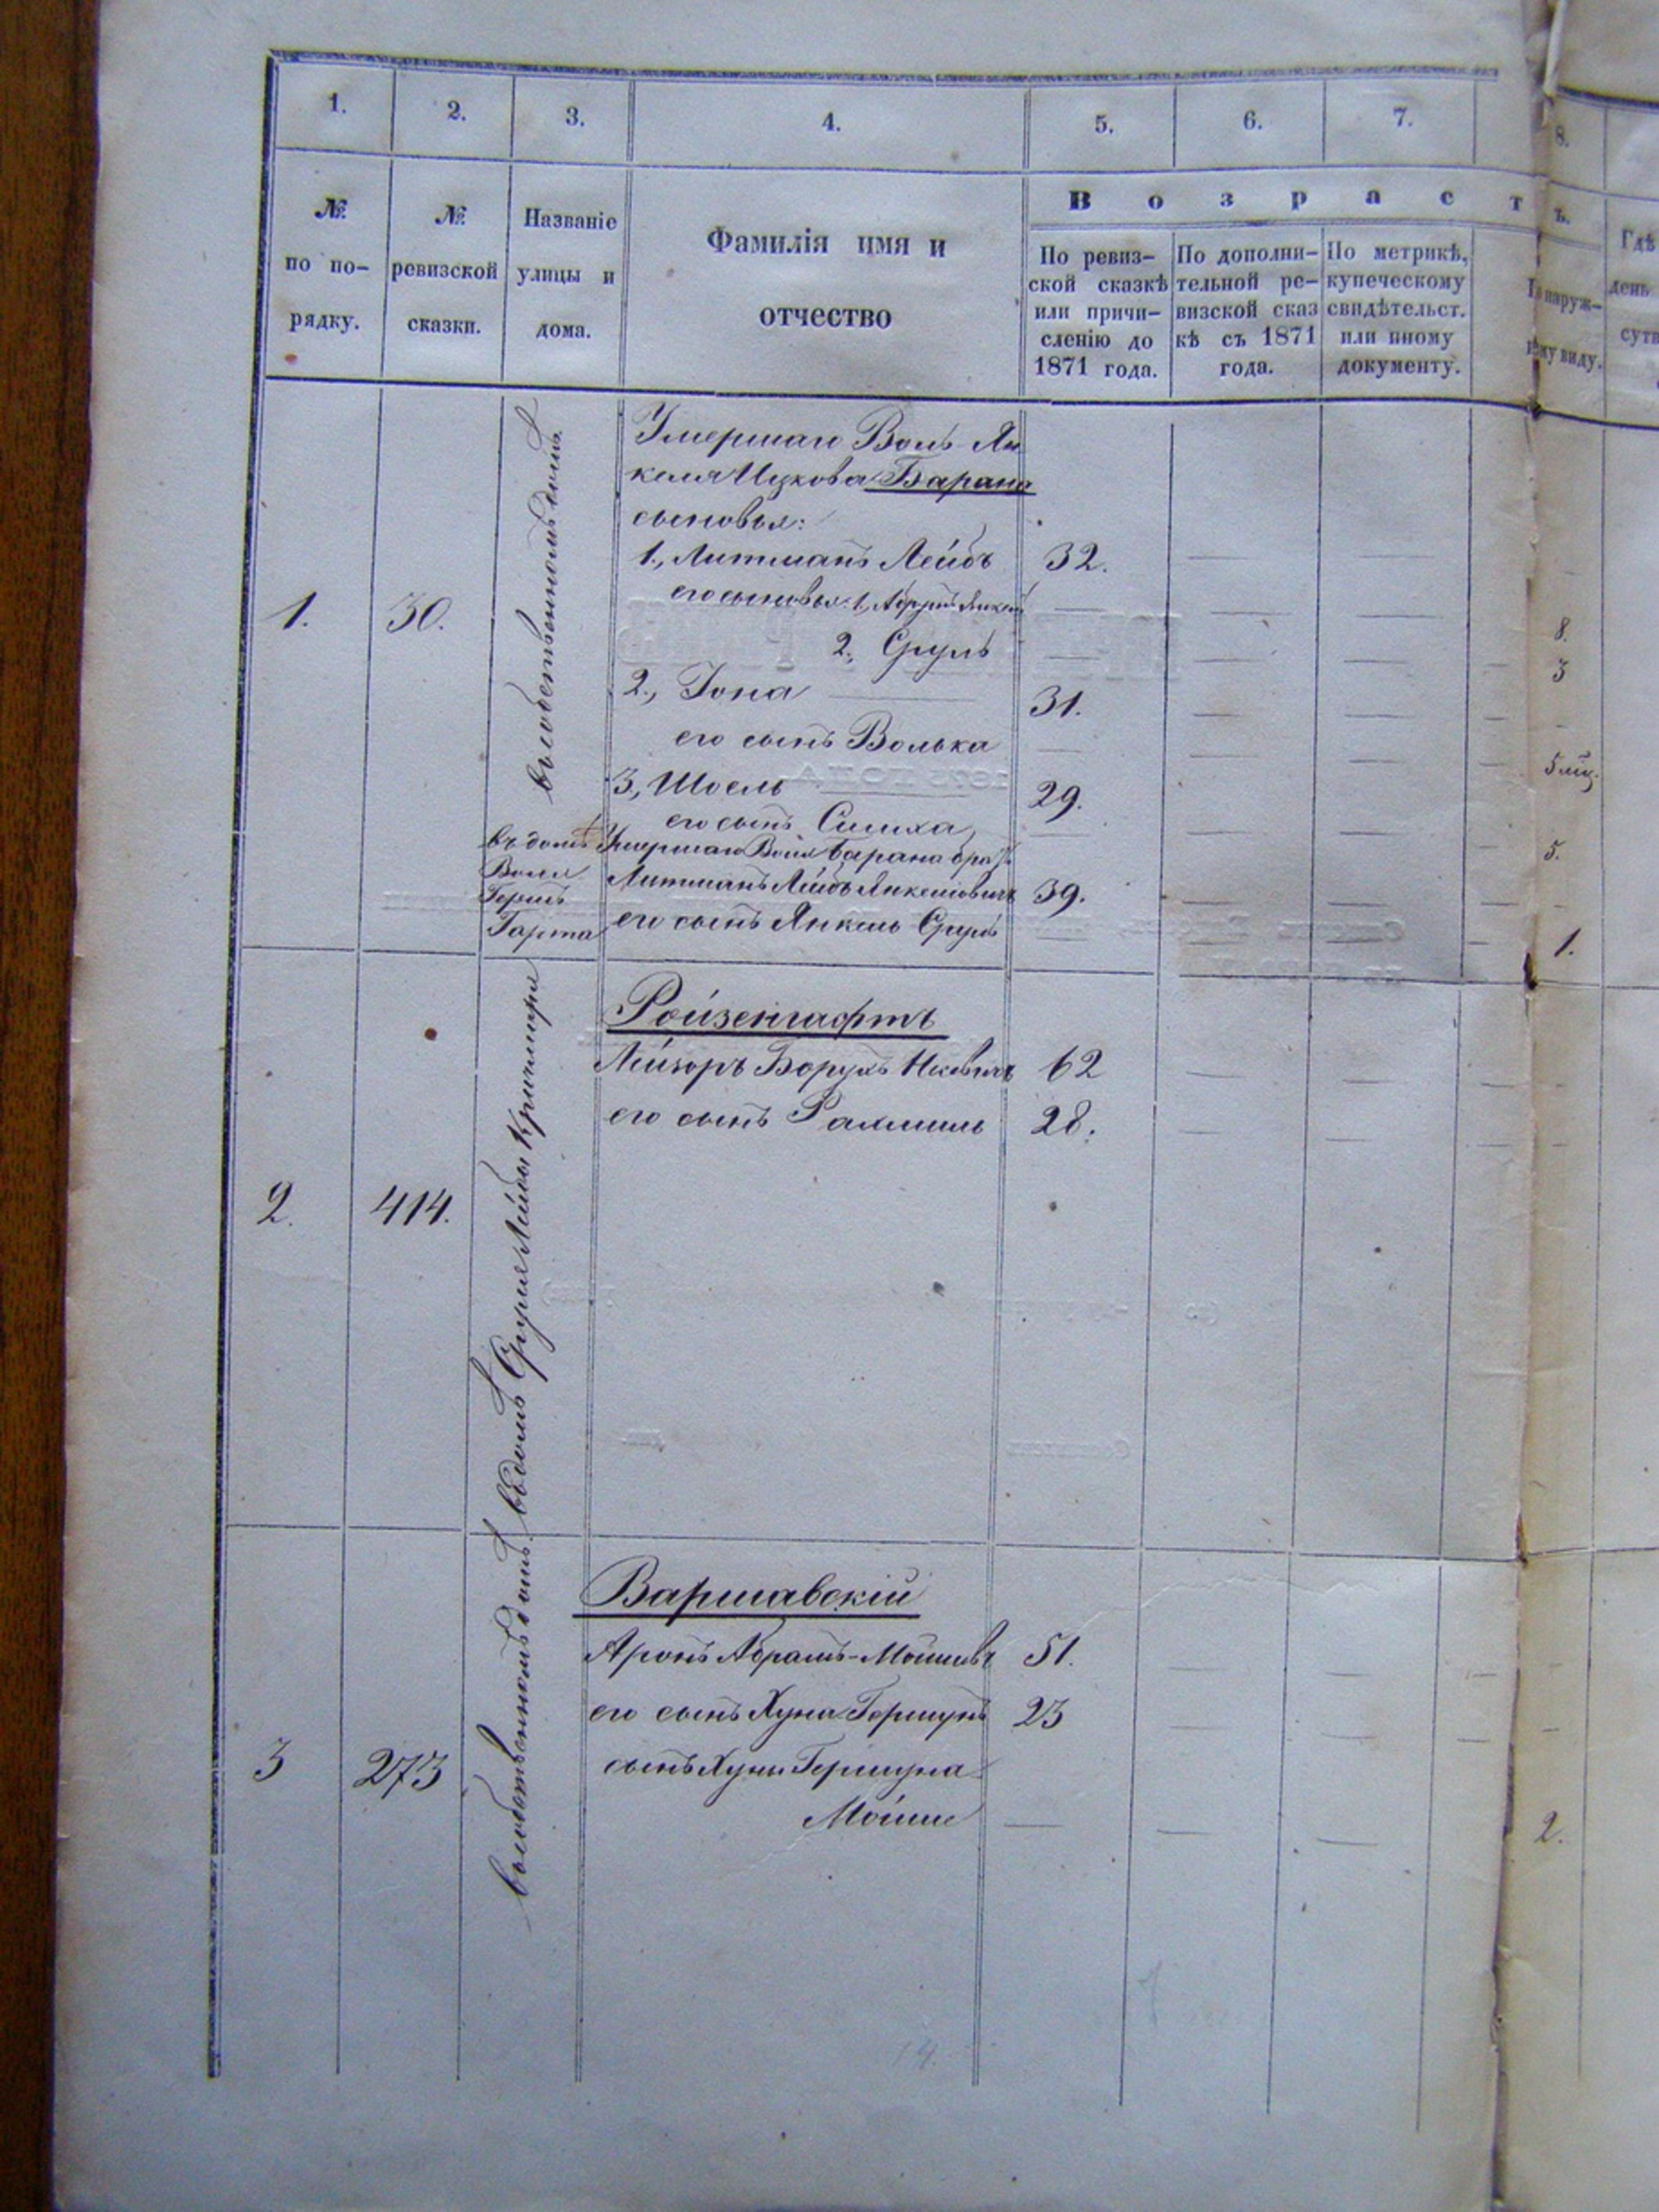 1.
2.
3.
4.
5.
6.
7.
8.
№
по по-
рядку.
№
ревизской
сказки.
Названіе
улицы и
дома.
Фамилія имя и
отчество
Возрастъ.
По ревиз-
ской сказкѣ
или причи-
сленію до
1871 года.
По дополни-
тельной ре-
визской сказ
кѣ съ 1871
года.
По метрикѣ,
купеческому
свидѣтельст.
или иному
документу.
По наруж-
ному виду.
Гдѣ
день
сутв
1.
30.
въ собственномъ домѣ
Умершаго Воль-Ян
келя Ицкова Барана
сыновья:
1., Литманъ Лейбъ 32.
его сыновья: 1, Абрумъ Янкель 8.
2., Сруль 3
2., Іона 31.
его сынъ Волька 5 мѣ.
3, Шоель 29.
его сынъ Симха 5.
въ домѣ
Воля
Герша
Гарта
Умершаго Воля Барана братъ
Литманъ Лейбъ Янкелiовичъ 39.
его сынъ Янкель Сруль 1.
2.
414.
въ домѣ Сруля Лейбы
Ройзенгафтъ
Лейзоръ Борухъ 62
его сынъ Рахмиль 28.
3
273
въ собственномъ домѣ
Варшавскій
Аронъ Абрамъ-Мошков 51.
его сынъ Хуна Гершунъ 23
сынъ Хуны Гершуна
Мойше 2.
14.